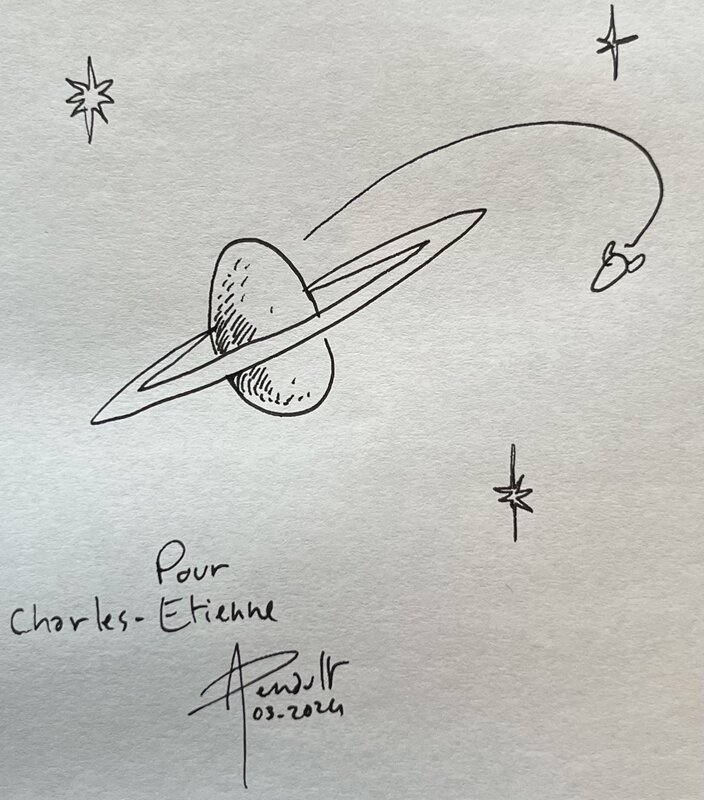 Pour
Charles-Etienne
Renault
03-2024